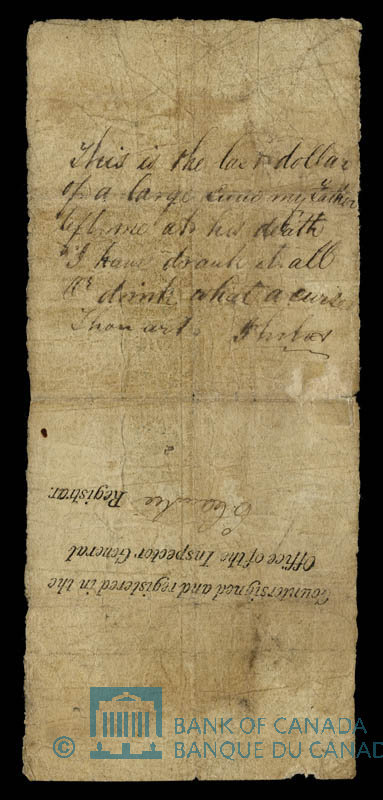 This is the last dollar
of a large my Father
left me at his death
I have drank it all
drink what a curse
Thou art
Registrar.
Office of the Inspector General
Countersigned and registered in the
© BANK OF CANADA
BANQUE DU CANADA